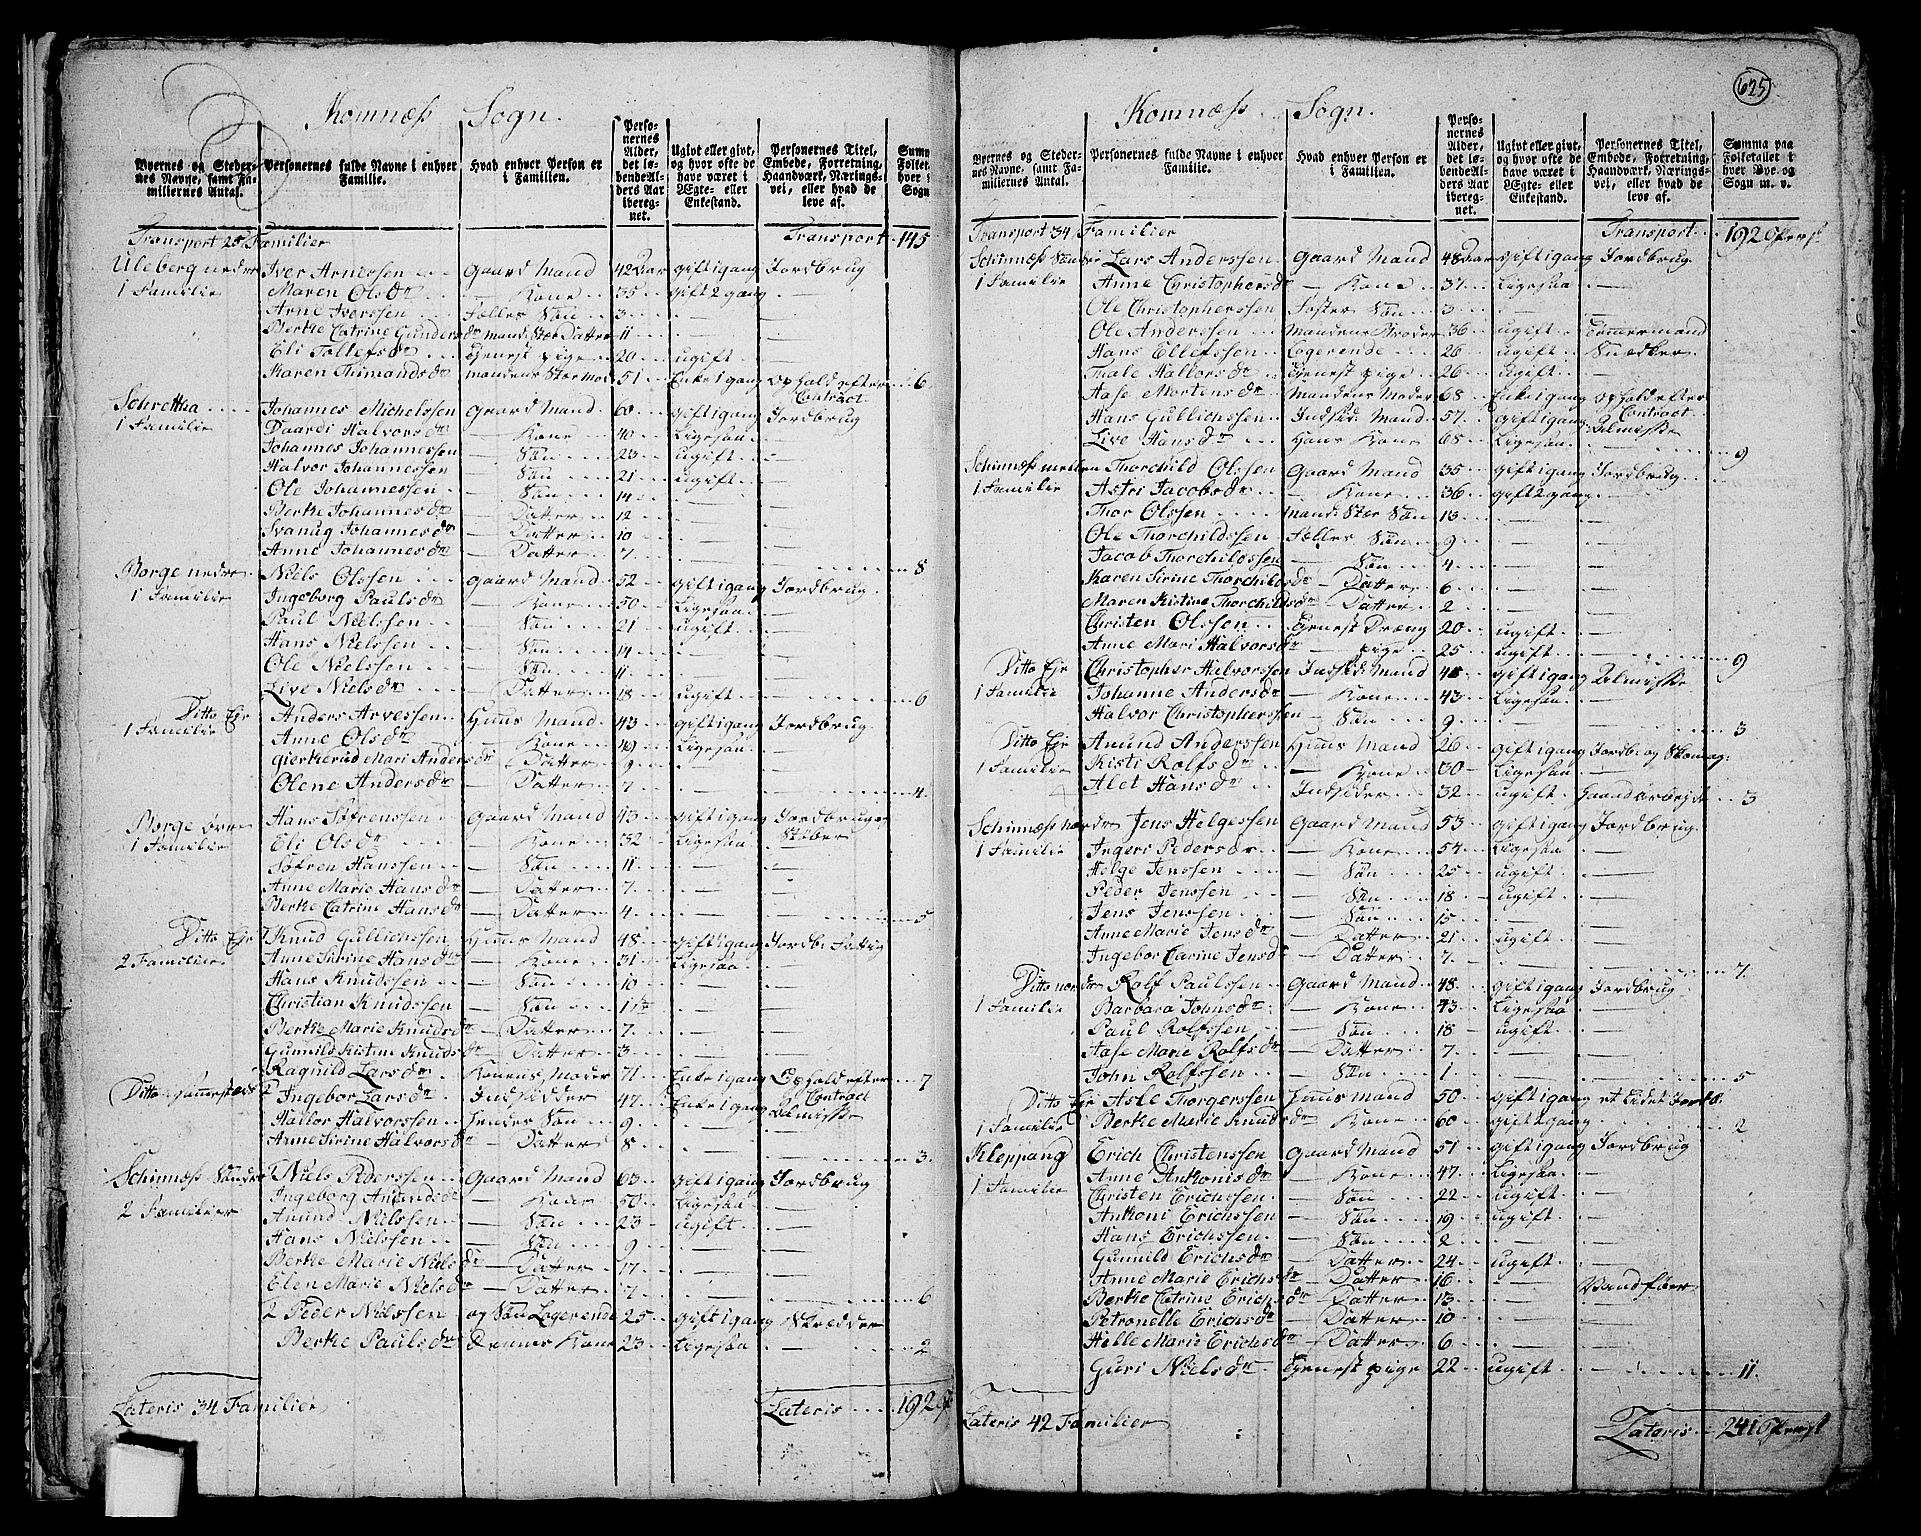 Komnæs Sogn.
Byernes og Stedernes Navne, samt Familiernes Antal.
Personernes fulde Navne i enhver Familie.
Hvad enhver Person er i Familien.
Personernes Alder, det løbendeAlders Aar iberegnet.
Ugivt eller givt, og hvor ofte de have været i Ægte- eller Enkestand.
Personernes Titel, Embede, Forretning, Haandværk, Næringsvei, eller hvad de leve af.
Transport 25 Familier Transport 145
Uleberg nedre Iver Arnessen Gaard Mand 42 Aar gift 1 gang Jordbrug
1 Familie Maren Olsdr — Kone 35 gift 2 gang —
Arne Iverssen Fælles Søn 3 — —
Berthe Catrine Gundersdr mand: Stor Datter 11 — —
Eli Tollefsdr tienest pige 20 ugift —
Karen Thimandsdr mandens Stermor 51 Enke 1 gang ophold efter Contract 6
Schrettha Johannes Michelssen Gaard Mand 60 gift 1 gang Jordbrug
1 Familie Daardi Halvorsdr — Kone 40 Ligesaa —
Johannes Johannessen — Søn 23 ugift —
Halvor Johannessen — Søn 21 ugift —
Ole Johannessen — Søn 14 — —
Berthe Johannesdr — Datter 12 — —
Svanug Johannesdr — Datter 10 — —
Anne Johannesdr — Datter 7 — — 8
Borge nedre Niels Olssen Gaard Mand 52 gift 1 gang Jordbrug
1 Familie Ingeborg Paulsdr — Kone 50 Ligesaa —
Paul Nielssen — Søn 21 ugift —
Hans Nielssen — Søn 14 — —
Ole Nielssen — Søn 11 — —
Live Nielsdr — Datter 18 ugift — 6
Ditto Eje Anders Arvessen Huus Mand 43 gift 1 gang Jordbrug
1 Familie Anne Olsdr — Kone 49 Ligesaa —
Gierthrud Mari Andersdr — Datter 9 — —
Olene Andersdr — Datter 7 — — 4
Borge øvre Hans Søfrenssen Gaard Mand 43 gift 1 gang Jordbruger Støber
1 Familie Eli Olsdr — Kone 32 Ligesaa
Søfren Hanssen — Søn 11 — —
Anne Marie Hansdr — Datter 7 — —
Berthe Catrine Hansdr — Datter 4 — — 5
Ditto Eje Knud Gullichssen Huus Mand 48 gift 1 gang Jordb: Fattig
2 Familier Anne Sirine Hansdr — Kone 31 Ligesaa —
Hans Knudssen — Søn 10 — —
Christian Knudssen — Søn — —
Berthe Marie Knudsdr — Datter 7 — —
Gunnild Kistine Knudsdr — Datter 3 — —
Ragnild Larsdr Konens Moder 71 Enke 1 gang Ophold efter Contract 7
Ditto 2 Ingebor Larsdr Indsidder 47 Enke 1 gang Almisse
Hallor Halvorssen Hendes Søn 9 — —
Anne Sirine Halvorsdr — Datter 8 — — 3
Schinnæss Søndre 1 Niels Pederssen Gaard Mand 63 gift 1 gang Jordbrug
2 Familier Ingeborg Anundsdr — Kone 50 Ligesaa —
Anund Nielssen — Søn 23 ugift —
Hans Nielssen — Søn 9 — —
Berthe Marie Nielsdr — Datter 17 — —
Elen Marie Nielsdr — Datter 7 — — 6
2 Peder Nielssen og Søn Logerende 25 gift 1 gang Skrædder
Berthe Paulsdr Dennes Kone 23 Ligesaa — 2
Lateris 34 Familier Lateris 192
625
Komnæs Sogn.
Byernes og Stedernes Navne, samt Familiernes Antal.
Personernes fulde Navne i enhver Familie.
Hvad enhver Person er i Familien.
Personernes Alder, det løbendeAlders Aar iberegnet.
Ugivt eller givt, og hvor ofte de have været i Ægte- eller Enkestand.
Personernes Titel, Embede, Forretning, Haandværk, Næringsvei, eller hvad de leve af.
Summa paa Folketallet i hver Bye og Sogn m. v.
Transport 34 Familier Transport 192 Perss
Schinnæss Søndre Lars Anderssen Gaard Mand 48 Aar gift 1 gang Jordbrug
1 Familie Anne Christophersdr — Kone 37 Ligesaa —
Ole Christopherssen Foster Søn 3 — —
Ole Anderssen Mandens Broder 36 ugift Tømmermand
Hans Ellefssen Logerende 26 ugift Snedker
Thale Hallorsdr tienest pige 26 ugift —
Aase Mortensdr Mandens Moder 68 Enke 1 gang ophold efter Contract
Hans Gullichssen Indsid: Mand 57 gift 1 gang Almisse
Live Hansdr Hans Kone 65 Ligesaa 9
Schinnæss mellem Thorchild Olssen Gaard Mand 35 gift 1 gang Jordbrug
1 Familie Astri Jacobsdr — Kone 36 gift 2 gang —
Thor Olssen mand: Stor Søn 13 — —
Ole Thorchildssen Fælles Søn 9 — —
Jacob Thorchildssen — Søn 4 — —
Karen Sirine Thorchildsdr — Datter 6 — —
Maren Kistine Thorchildsdr — Datter 2 — —
Christen Olssen Tienest Dræng 20 ugift —
Anne Mari Halvorsdr — pige 25 ugift — 9
Ditto Eje Christopher Halvorssen Indsid: Mand gift 1 gang Almisse
1 Familie Johanne Andersdr — Kone 43 Ligesaa —
Halvor Christopherssen — Søn 9 — — 3
Ditto Eje Anund Anderssen Huus Mand 26 gift 1 gang Jordb: og Skomag:
1 Familie Kisti Rolfsdr — Kone 30 Ligesaa —
Alet Hansdr Indsider 32 ugift Haandarbejde 3
Schinnæss nordre Jens Helgessen Gaard Mand 53 gift 1 gang Jordbrug
1 Familie Ingers Pedersdr — Kone 54 Ligesaa —
Helge Jenssen — Søn 25 ugift —
Peder Jenssen — Søn 18 ugift —
Jens Jenssen — Søn 15 — —
Anne Marie Jensdr — Datter 21 ugift —
Ingebor Carine Jensdr — Datter 7 — — 7
Ditto nordre Rolf Paulssen Gaard Mand 48 gift 1 gang Jordbrug
1 Familie Barbara Johnsdr — Kone 43 Ligesaa —
Paul Rolfssen — Søn 18 ugift —
Aase Marie Rolfsdr — Datter 7 — —
John Rolfssen — Søn 1 — — 5
Ditto Eje Asle Thorgerssen Huus mand 50 gift 1 gang et lidet Jordb:
1 Familie Berthe Marie Knudsdr — Kone 60 gift 1 gang — 2
Kleppang Erich Christenssen Gaard Mand 51 gift 1 gang Jordbrug
1 Familie Anne Anthonisdr — Kone 47 Ligesaa —
Christen Erichssen — Søn 22 ugift —
Anthoni Erichssen — Søn 19 ugift —
Hans Erichssen — Søn 2 — —
Gunnild Erichsdr — Datter 24 ugift —
Anne Marie Erichsdr — Datter 16 —
Berthe Catrine Erichsdr — Datter 13 —
Petronelle Erichsdr — Datter 10 — —
Helle Marie Erichsdr — Datter 6 — —
Guri Nielsdr tienest pige 22 ugift — 11
Lateris 42 Familier Lateris 241 Perss